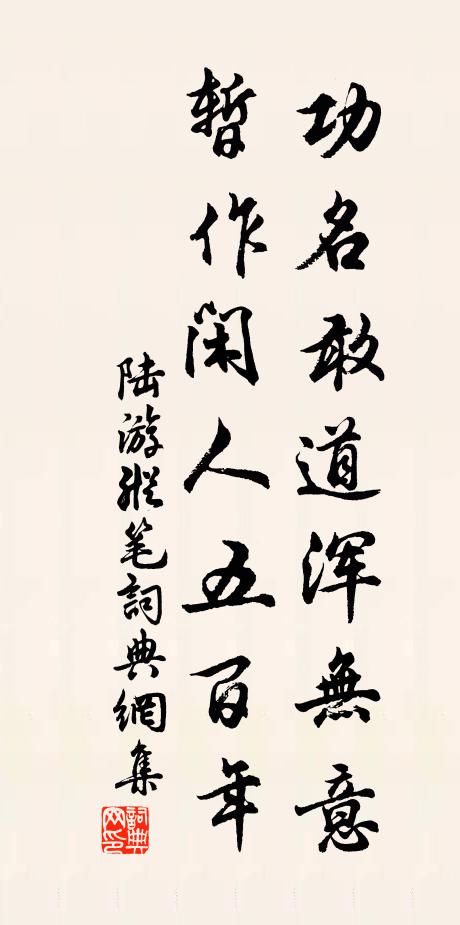 功名敢道浑無意
暫作闲人五百年
陆游縱笔詞典網集
詞典